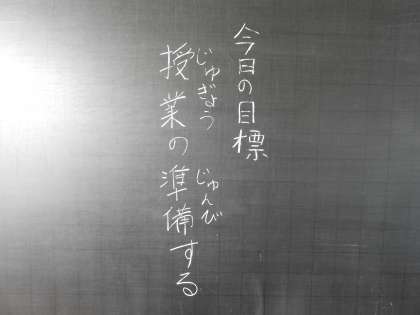 今日の目標
じゅぎょう じゅんび
授業の準備する